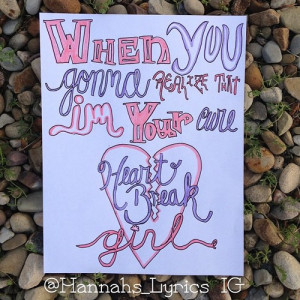 When you
gonna REALIZE THAT
im Your cure
Heart
Break
girl
@Hannahs_Lyrics IG